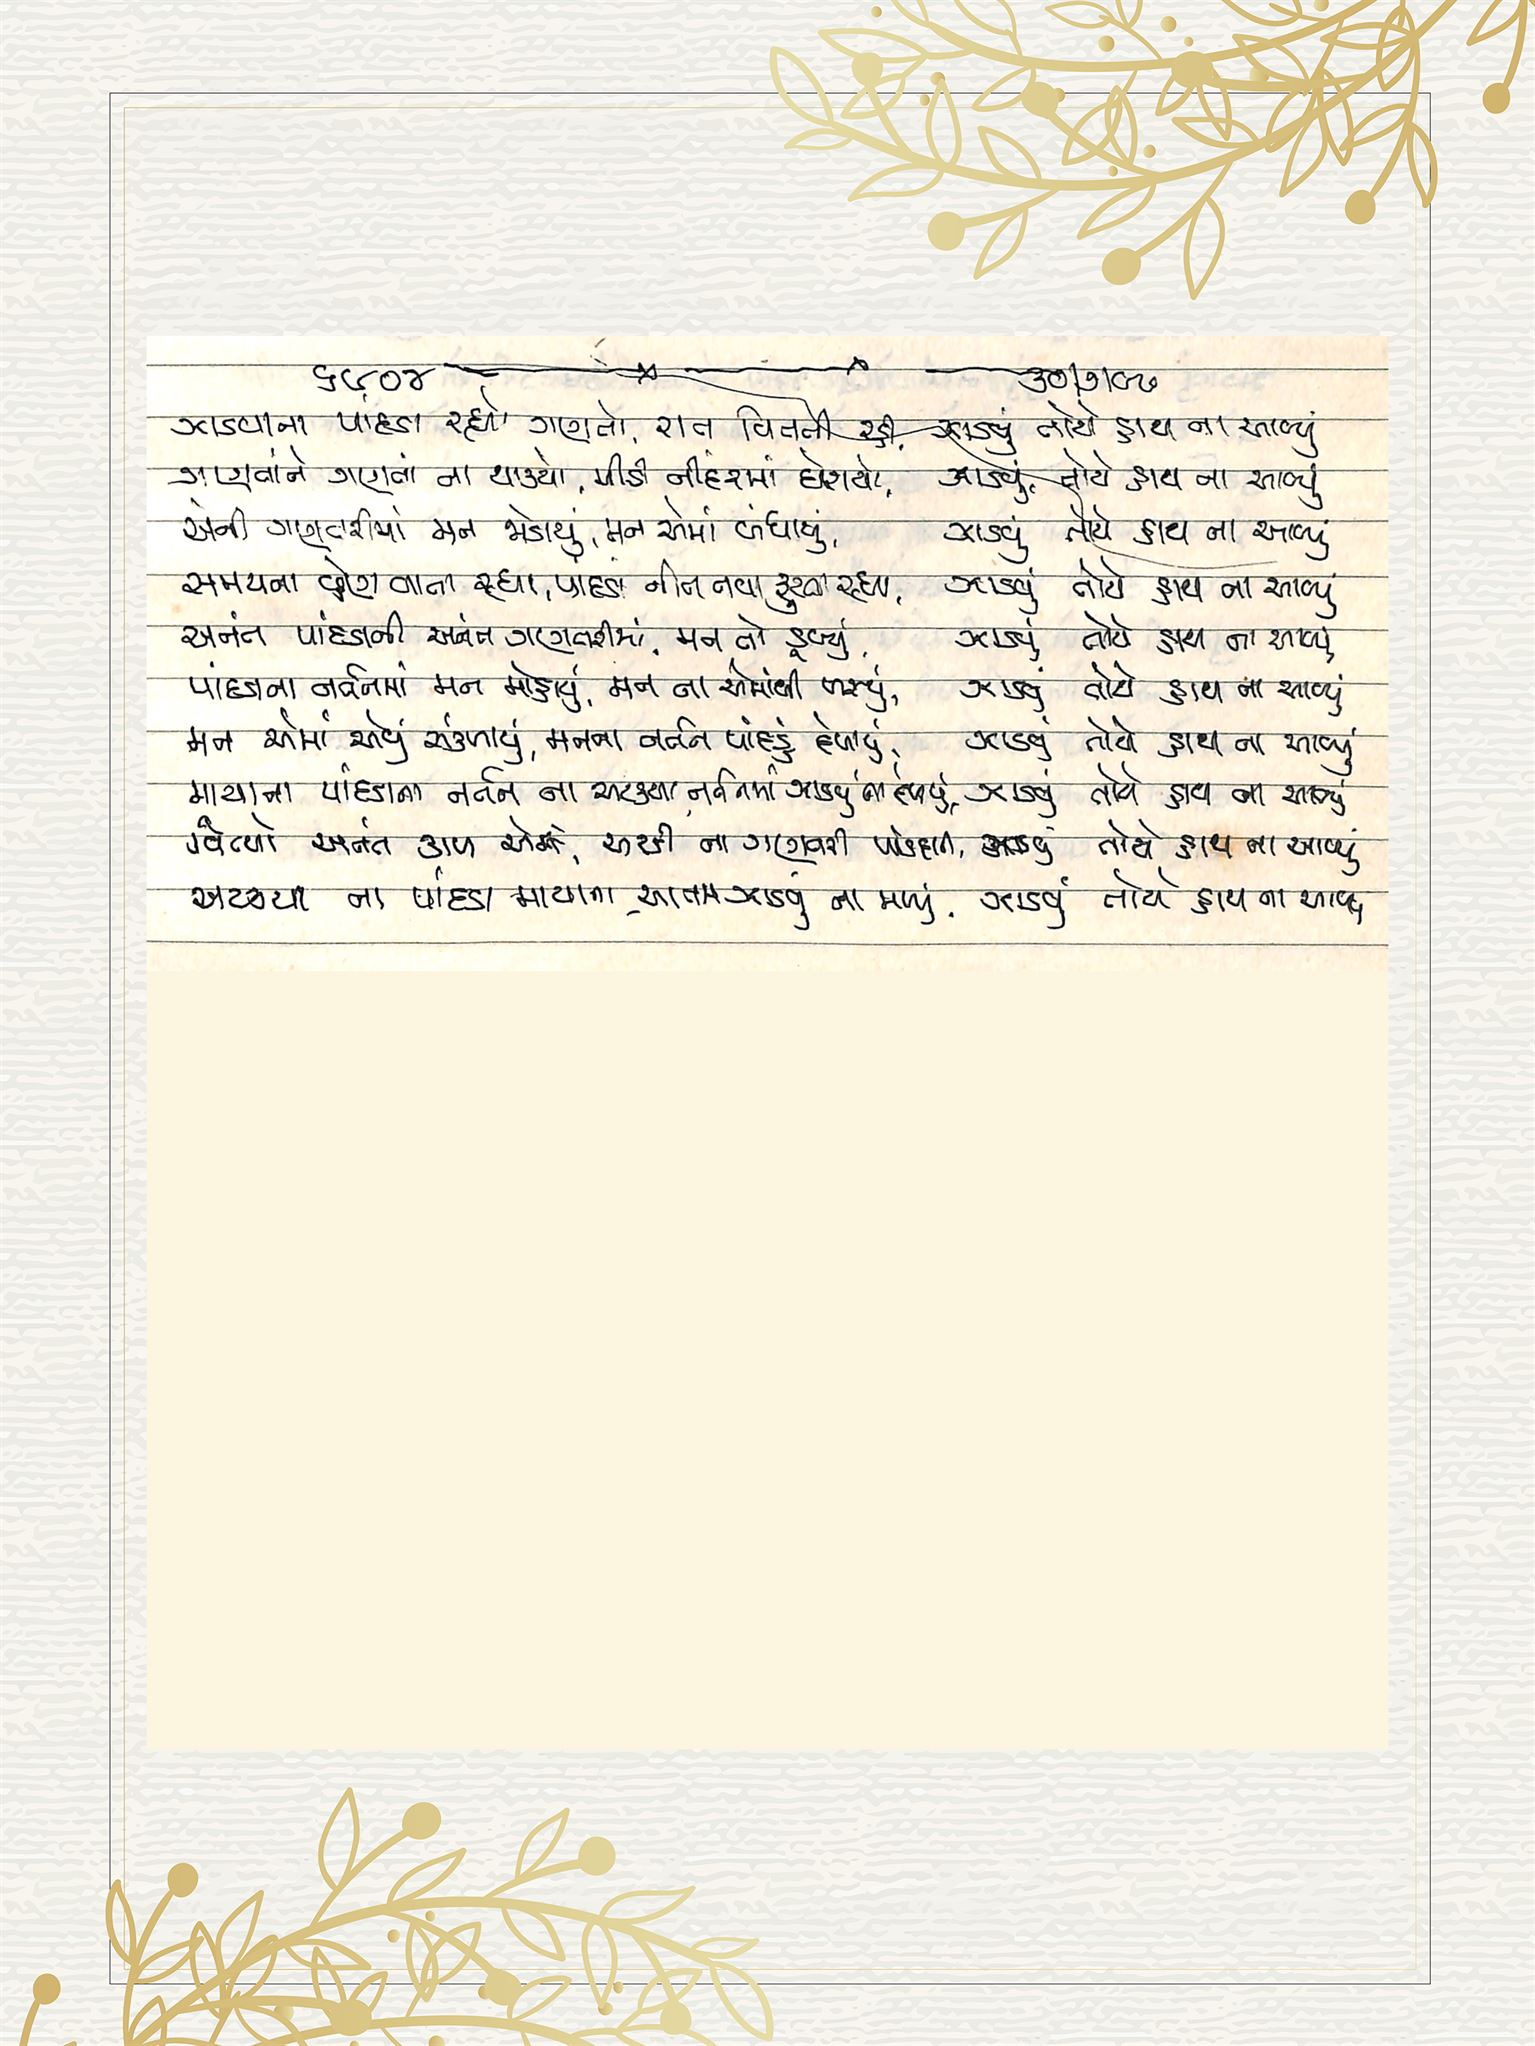 ૬૯૦૪ ૩૦/૭/૮૭
ઝાડવાના પાંદડા રહ્યો ગણતો, રાત વિતતી રહી, ઝાડવું તોયે હાથ ના આવ્યું
ગણતાંને ગણતાં ના થાક્યો, મીઠી નીંદરમાં ઘેરાયો, ઝાડવું તોયે હાથ ના આવ્યું
એની ગણતરીમાં મન જોડાયું, મન એમાં બંધાયું, ઝાડવું તોયે હાથ ના આવ્યું
સમયના વ્હેણ વાતા રહ્યા, પાંદડાં નીત નવા ફૂટતા રહ્યા, ઝાડવું તોયે હાથ ના આવ્યું
અનંત પાંદડાની અનંત ગણતરીમાં, મન તો ડૂબ્યું, ઝાડવું તોયે હાથ ના આવ્યું
પાંદડાના નર્તનમાં મન મોહાયું, મન ના એમાંથી ખસ્યું, ઝાડવું તોયે હાથ ના આવ્યું
મન એમાં એવું સંકળાયું, મનના નર્તન પાંદડું દેખાયું, ઝાડવું તોયે હાથ ના આવ્યું
માયાના પાંદડાના નર્તન ના અટક્યા, નર્તનમાં ઝાડવું ના દેખાયું, ઝાડવું તોયે હાથ ના આવ્યું
વિત્યો અનંત કાળ એમાં, અટકી ના ગણતરી, ઝાડવું તોયે હાથ ના આવ્યું
અટક્યા ના પાંદડા માયાના, આતમ ઝાડવું ના મળ્યું, ઝાડવું તોયે હાથ ના આવ્યું